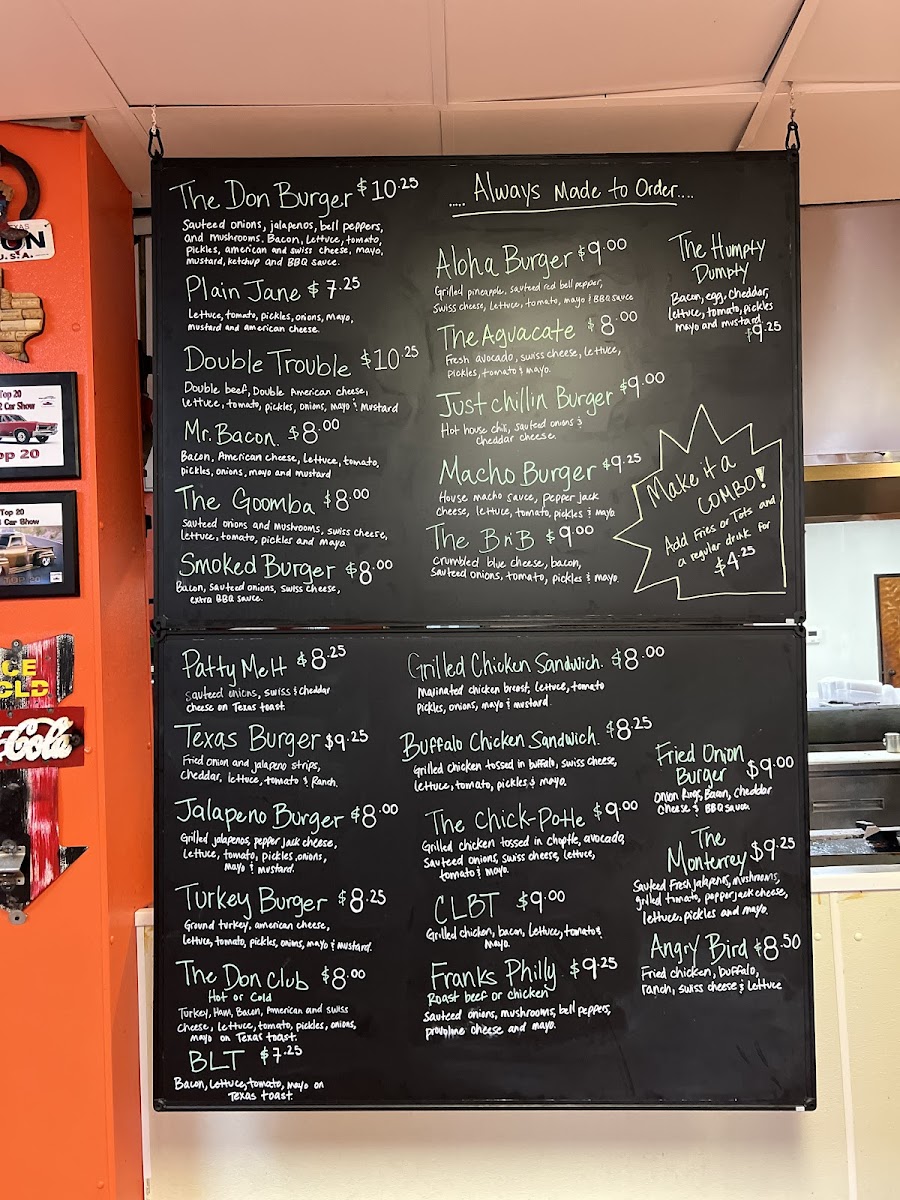 The Don Burger $10.25
Sauteed onions, jalapenos, bell peppers,
and mushrooms. Bacon, Lettuce, tomato,
pickles, american and swiss cheese, mayo,
mustard, ketchup and BBQ sauce.
Plain Jane $7.25
Lettuce, tomato, pickles, onions, mayo,
mustard and american cheese.
Double Trouble $10.25
Double beef, Double American cheese,
lettuce, tomato, pickles, onions, mayo & mustard
Mr. Bacon. $8.00
Bacon, American cheese, Lettuce, tomato,
pickles, onions, mayo and mustard
The Goomba $8.00
Sauteed onions and mushrooms, swiss cheese,
lettuce, tomato, pickles and mayo.
Smoked Burger $8.00
Bacon, sauteed onions, swiss cheese,
extra BBQ sauce.
..... Always Made to Order....
Aloha Burger $9.00
Grilled pineapple, sauteed red bell pepper,
Swiss cheese, Lettuce, tomato, mayo & BBQ sauce
The Aguacate $8.00
Fresh avocado, swiss cheese, lettuce,
pickles, tomato & mayo.
Just chillin Burger $9.00
Hot house chili, sauteed onions &
cheddar cheese.
Macho Burger $9.25
House macho sauce, pepper jack
cheese, lettuce, tomato, pickles & mayo
The B n' B $9.00
Crumbled blue cheese, bacon,
Sauteed onions, tomato, pickles & mayo.
The Humpty
Dumpty
Bacon, egg, cheddar,
lettuce, tomato, pickles
mayo and mustard
$9.25
Make it a
COMBO!
Add Fries or Tots and
a regular drink for
$4.25
Patty Melt $8.25
Sauteed onions, swiss & cheddar
cheese on Texas toast.
Texas Burger $9.25
Fried onion and jalapeno strips,
cheddar, lettuce, tomato & Ranch.
Jalapeno Burger $8.00
Grilled jalapenos, pepper jack cheese,
Lettuce, tomato, pickles, onions,
mayo & mustard.
Turkey Burger $8.25
Ground turkey, american cheese,
lettuce, tomato, pickles, onins, mayo & mustard.
The Don Club $8.00
Hot or Cold
Turkey, Ham, Bacon, American and swiss
cheese, lettuce, tomato, pickles, onions,
mayo on Texas toast.
BLT $7.25
Bacon, Lettuce, tomato, mayo on
Texas toast.
Grilled Chicken Sandwich. $8.00
Marinated chicken breast, lettuce, tomato
pickles, onions, mayo & mustard.
Buffalo Chicken Sandwich. $8.25
Grilled chicken tossed in buffalo, swiss cheese,
lettuce, tomato, pickles & mayo.
The Chick-Potle $9.00
Grilled chicken tossed in chiptle, avocado,
Sauteed onions, swiss cheese, lettuce,
tomato & mayo.
CLBT $9.00
Grilled chicken, bacon, lettuce, tomato &
mayo.
Franks Philly $9.25
Roast beef or chicken
Sauteed onions, mushrooms, bell peppers,
provolone cheese and mayo.
Fried Onion
Burger $9.00
Onion Rings, Bacon, cheddar
cheese & BBQ sauce
The
Monterrey $9.25
Sauteed Fresh jalapenos, mushrooms,
grilled tomato, pepperjack cheese,
lettuce, pickles and mayo.
Angry Bird $8.50
Fried chicken, buffalo,
ranch, swiss cheese & Lettuce
U.S.A.
Top 20
Car Show
Top 20
Top 20
Car Show
TOP 20
ICE
COLD
Coca-Cola